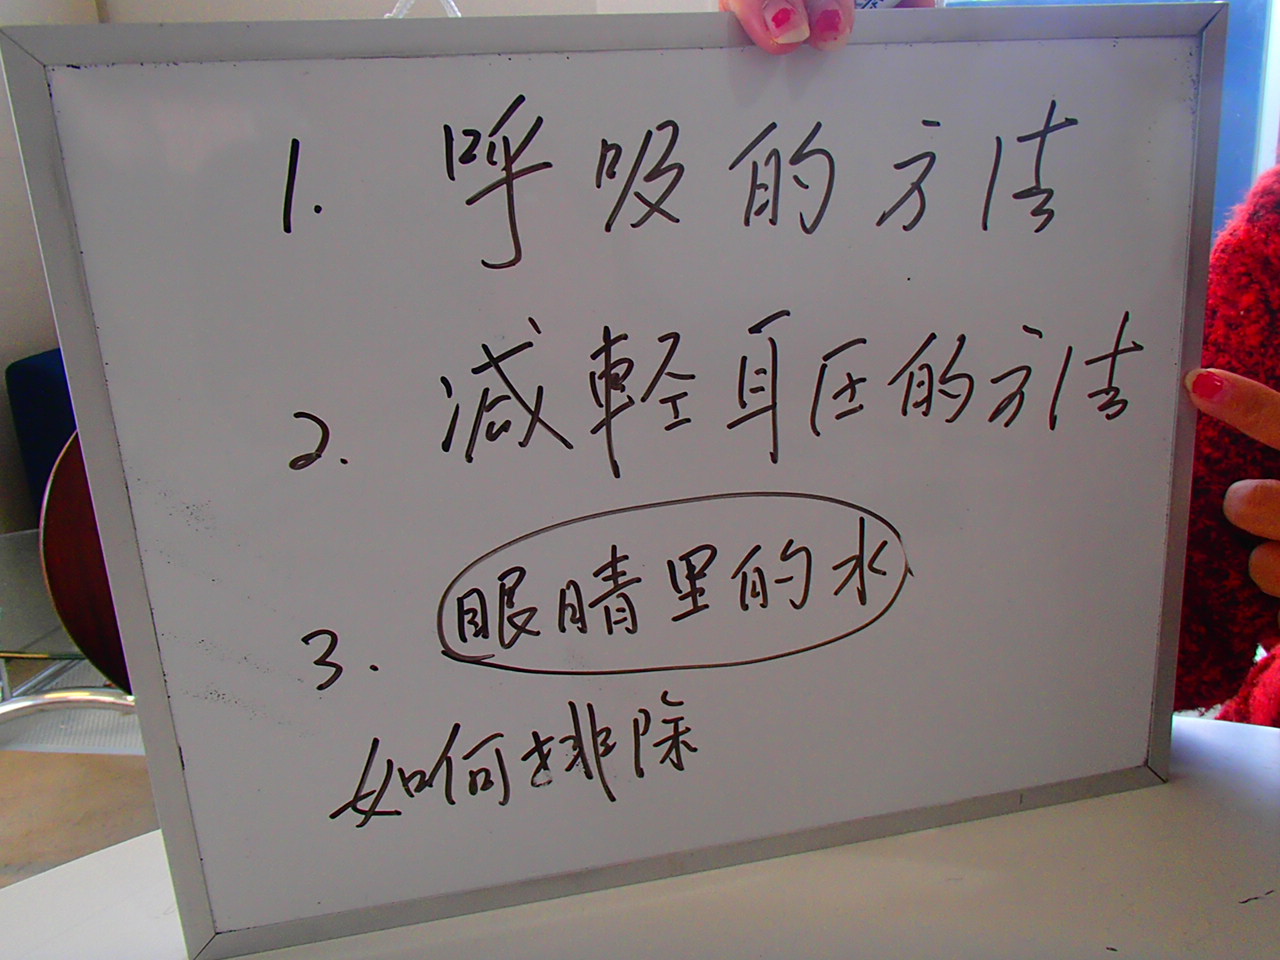 1. 呼吸的方法
2. 減軽耳圧的方法
3. 眼睛里的水
如何排除